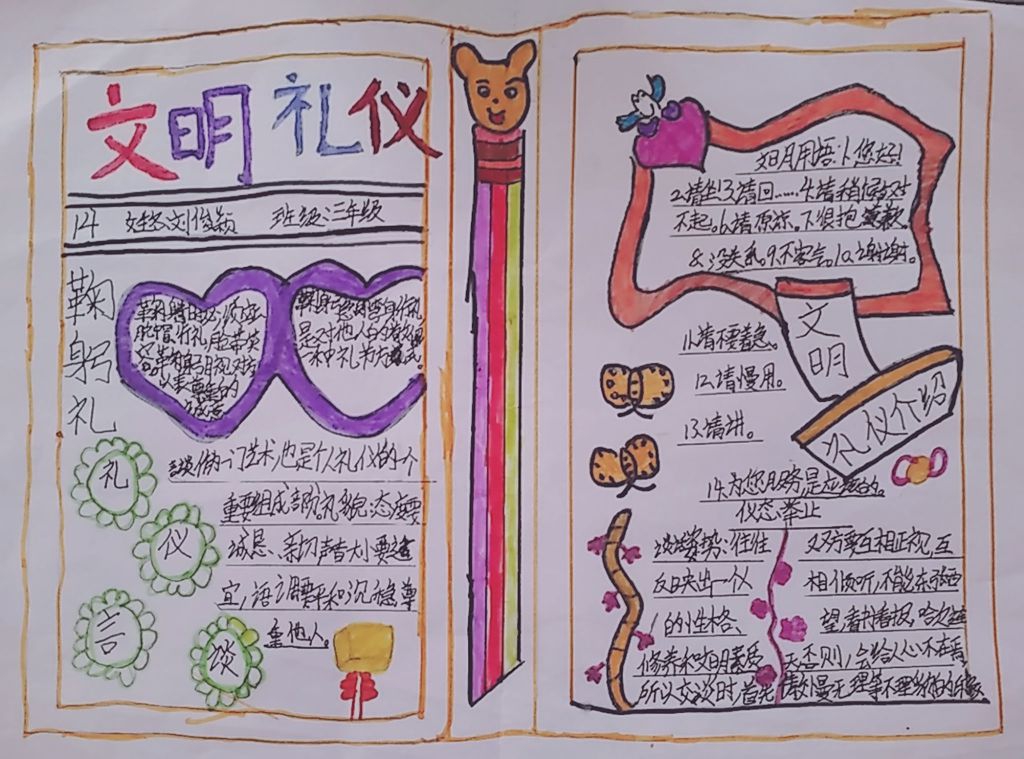 文明礼仪
14 姓名：刘俊颖 班级：三年级
鞠躬礼
是对他人的尊敬
礼
仪
言
谈
谈作为一门艺术，也是个人礼仪的一个
重要组成部分。礼貌：态度要
诚恳、亲切；声音大小要适
宜，语调要平和沉稳；尊
重他人。
文明用语：1、您好！
2.请坐！3.请回……4.请稍候5.对
不起。6.请原谅。7.很抱歉
8.没关系。9.不客气。10.谢谢。
11.请不要着急。
12.请慢用。
13.请讲。
文明
礼仪介绍
14.为您服务是应该的。
仪态举止
谈话姿势：往往
反映出一个人
的性格、
修养和文明素质
所以交谈时，首先
双方要互相正视、互
相倾听，不能东张西
望、看书看报、哈欠连
天否则，会给人心不在焉
傲慢无理等不理貌的印象